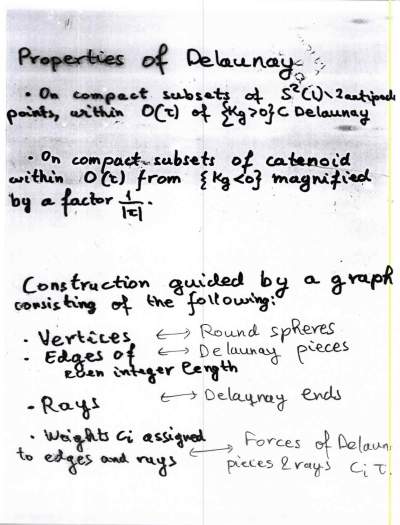 Properties of Delaunay
· On compact subsets of S²(1)\2 antipod
points, within O(τ) of {Kg>0} ⊂ Delaunay
· On compact subsets of catenoid
within O(τ) from {Kg<0} magnified
by a factor 1/|τ|.
Construction guided by a graph
consisting of the following:
· Vertices ↔ Round spheres
· Edges of ↔ Delaunay pieces
even integer length
· Rays ↔ Delaunay ends
· Weights Ci assigned ↔ Forces of Delaun
to edges and rays pieces & rays Ci τ.